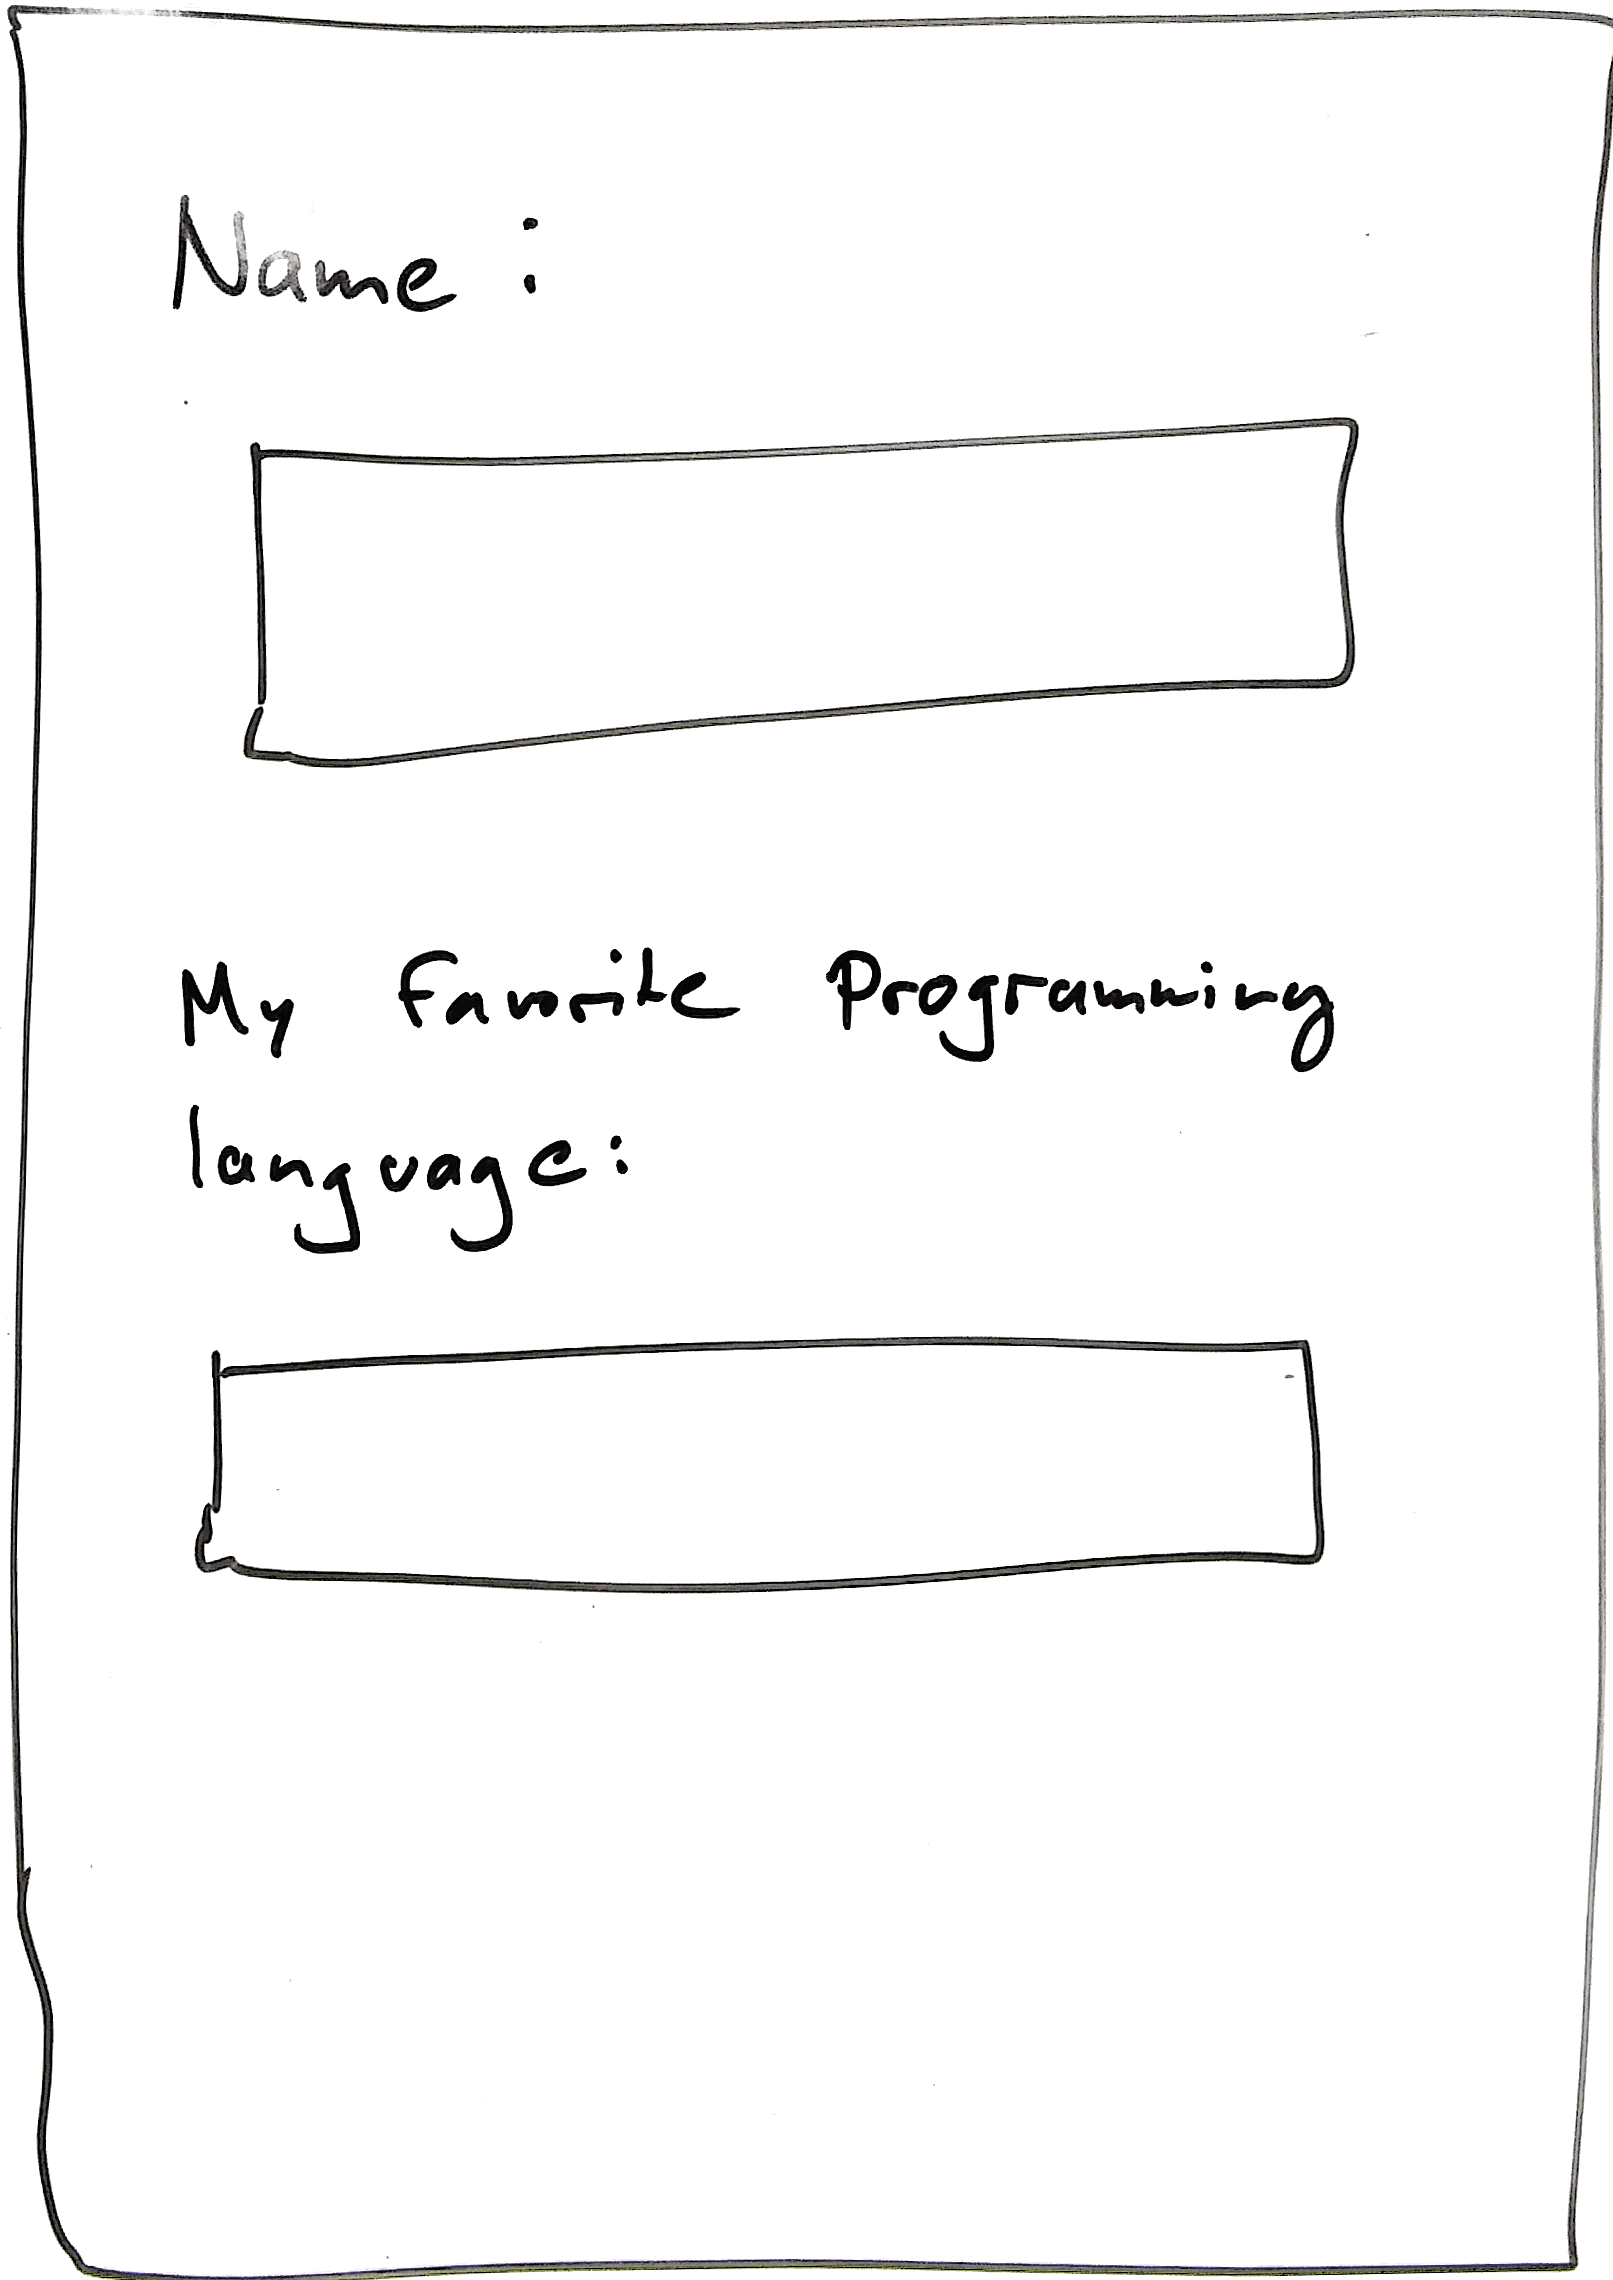 Name :
My favorite Programming
language: